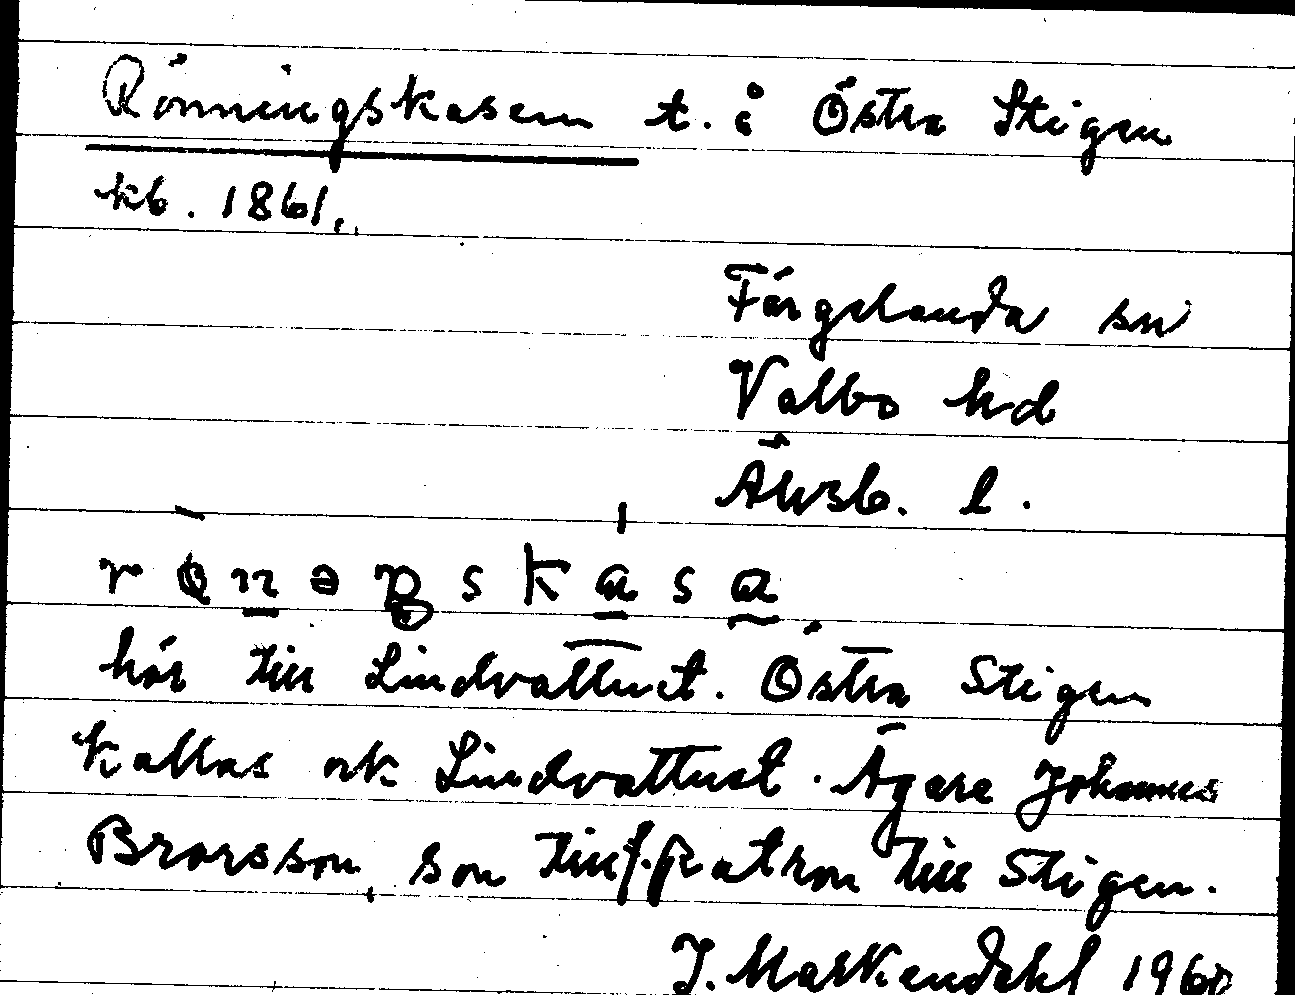 Rönningskasen t. å Östra Stigen
kb. 1861.
Färgelanda sn
Valbo hd
Älvsb. l.
rönəŋskasa
hör till Lindvattnet. Östra Stigen
kallas ock Lindvattnet. Ägare Johannes
Brorsson, son till f. Patron till Stigen.
J. Markendahl 1960